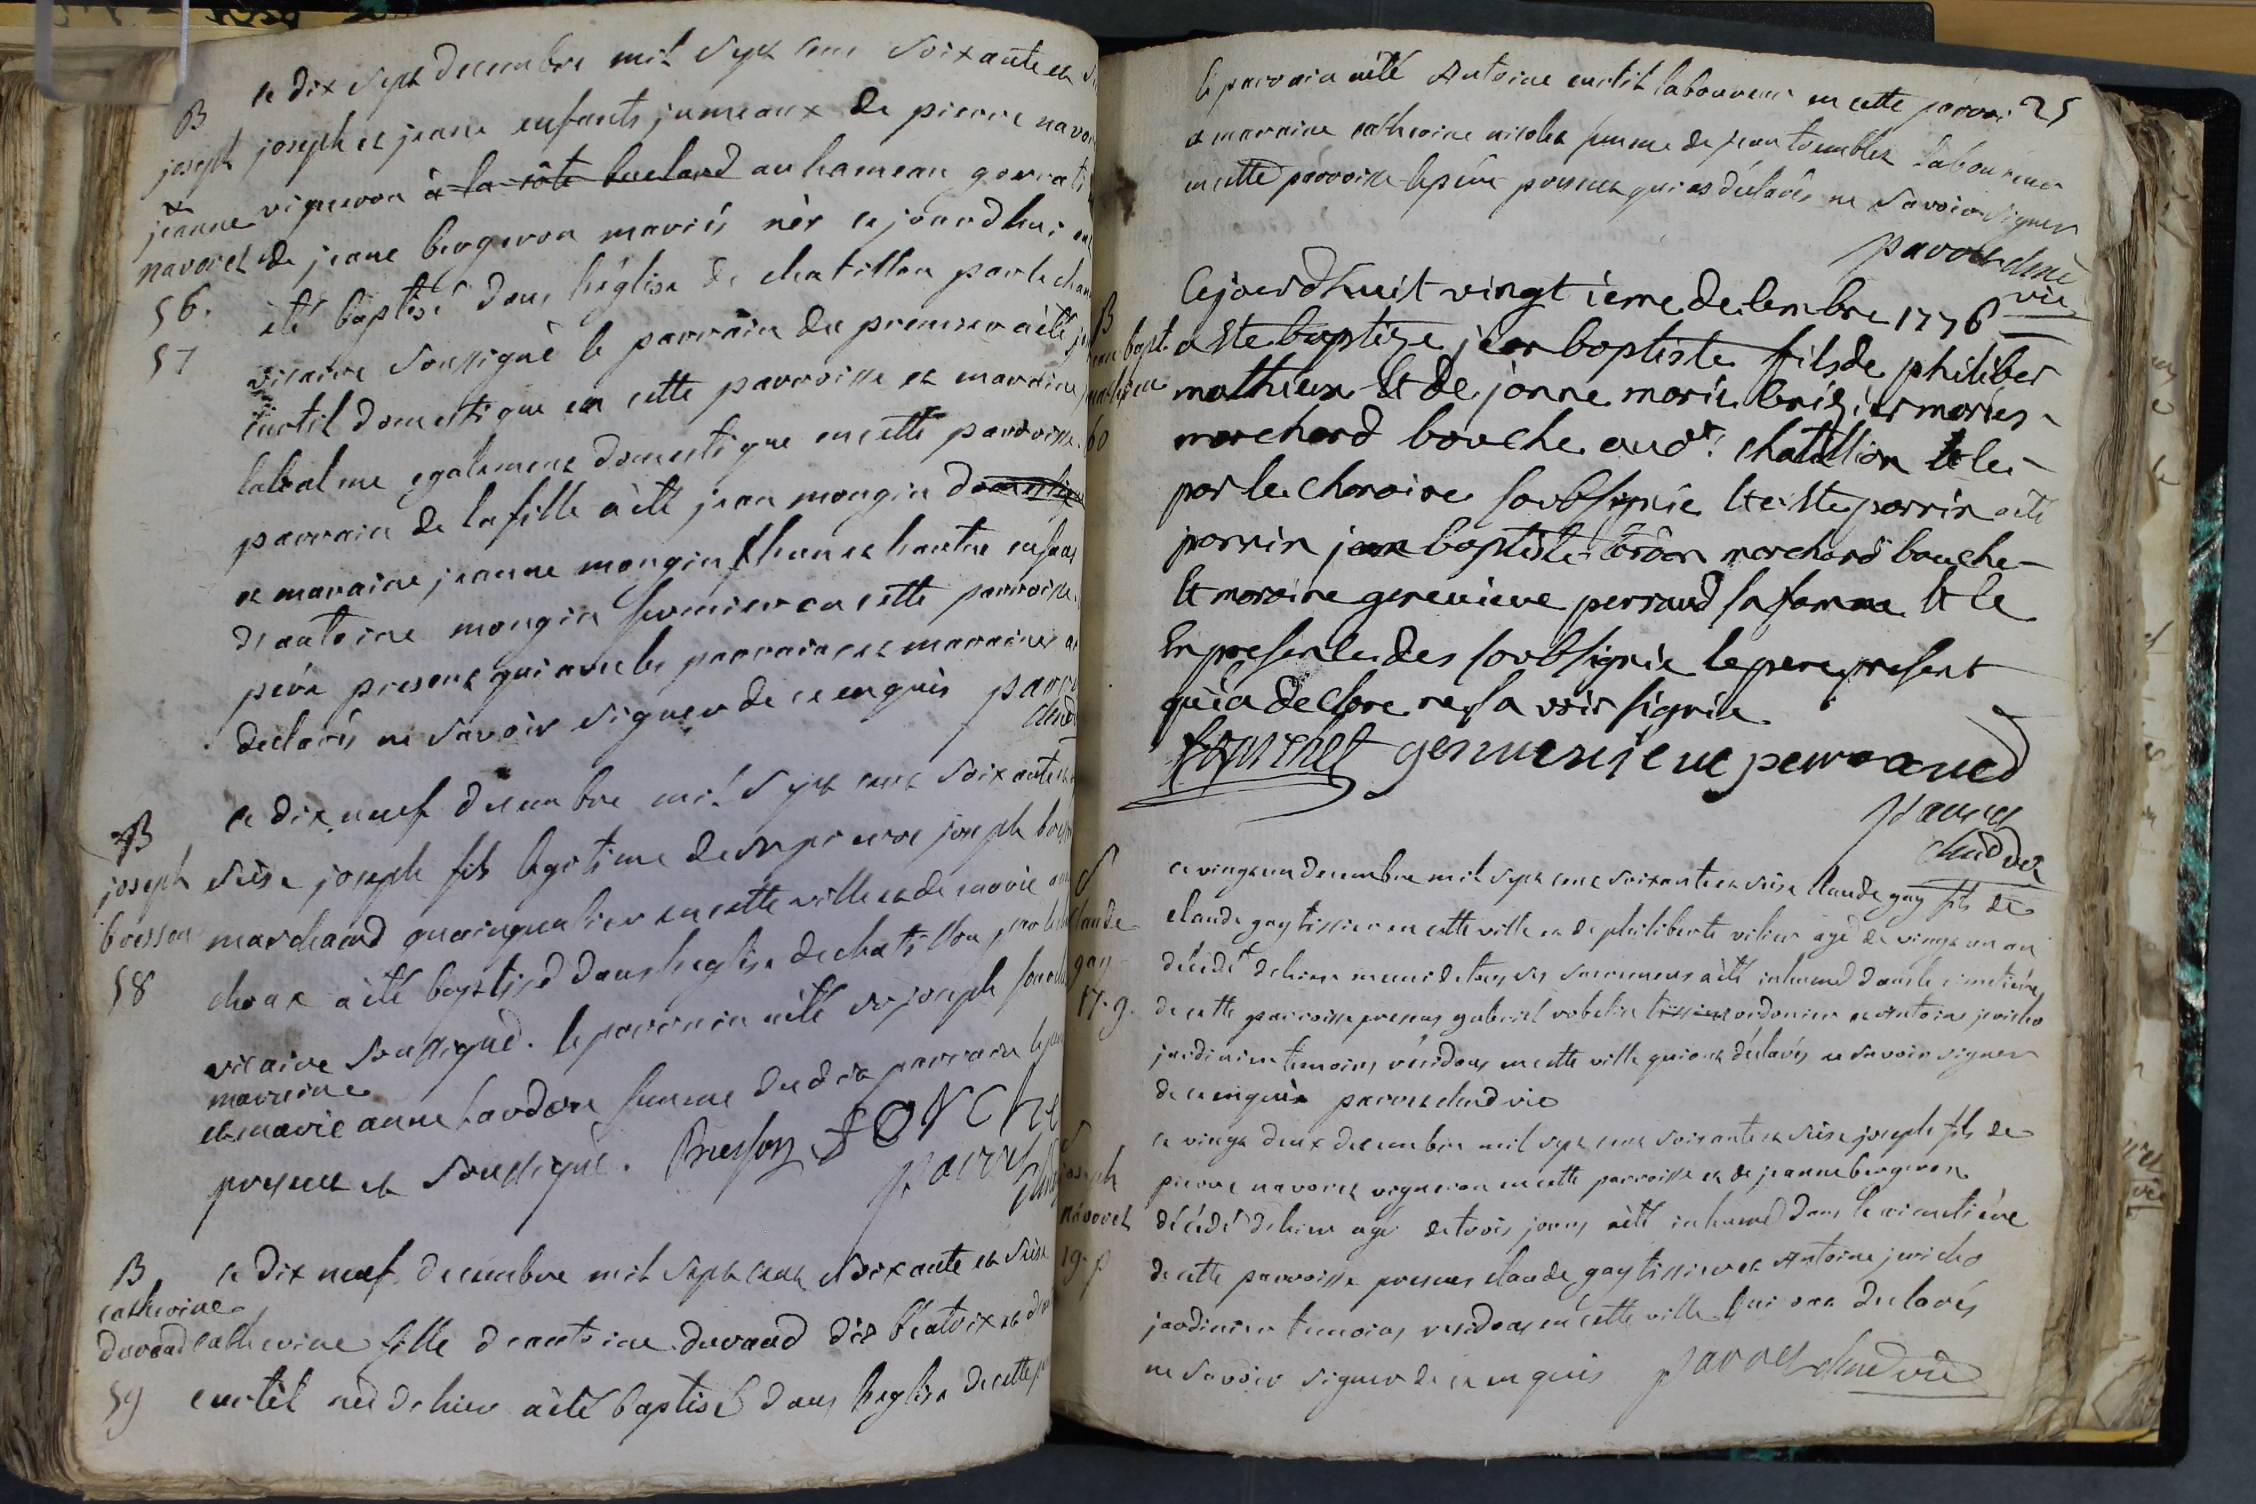 B
joseph
&
jeanne
navoret
56.
57
le dix sept decembre mil sept cens soixante et
joseph et jeane enfants jumeaux de pierre navor
vigneron à la côte au hameau gerra
de jeane bergeron mariés nés ce jourdhui
été baptisé dans l'église de chatillon par le chan
vicaire soussigné le parrain du premier a été
curtil domestique en cette parroisse et maraine
labalme egalement domestique en cette parroisse.
parrain de la fille a été jean mongin domestique
et maraine jeanne mongin enfans
d'antoine mongin fermier en cette parroisse.
père present qui avec les parrains et maraines
declarés ne savoir signer de ce enquis
B
joseph
boesson
58
le dix neuf decembre mil sept cent soixante et
seise joseph fils legitime de sr pierre joseph
marchand quainqualier en cette ville et de marie
a été baptisé dans l'eglise de chatillon par le
vicaire soussigné. le parrain a été sr joseph
marreine
et marie anne femme dudit parrain le
present et soussigné.
B
catherine
durand
59
le dix neuf decembre mil sept cent soixante et seise
catherine fille d'eantoine durand dit béatrix et
curtil née d'hier a été baptisé dans l'eglise de cette
25
le parrain a été Antoine curtil laboureur en cette parroi
et maraine catherine nicolet femme de jean laboureur
en cette parroisse le père present qui as déclarés ne savoir signer
parret chné
vic
B
jean bapt.
mathieu
60
Cejourdhuit vingt ieme desembre 1776
a ete baptize jean baptiste fils de philiber
mathieux et de janne marie mories
marchand bouche audt. chatillion et le
par le chanoine soubsignie et
parrin jean baptiste marchand bouche
et moraine genevieve perraud sa famme et le
En presence des soubsignie le pere present
qui a declare ne sa voir signie
parret
chné vic
S
Claude
gay
17.g.
ce vingt un decembre mil sept cent soixante et seise claude gay fils de
claude gay tissier en cette ville et de philiberte âgé de vingt un an
décédé d'hier muni de tous ses sacremens a été inhumé dans le cimetière
de cette parroisse presens gabriel robelin cordonier et antoine jericho
jardinier temoins résidens en cette ville qui ont déclarés ne savoir signer
de ce enquis parret chnd vic
S
joseph
navoret
19. p
ce vingt deux decembre mil sept cent soixante et seise joseph fils de
pierre navoret vigneron en cette parroisse et de jeanne bergeron
décédé d'hier agé de trois jours a été inhumé dans le cimetière
de cette parroisse presens claude gay tissier et Antoine jericho
jardinier temoins residens en cette ville qui ont declarés
ne savoir signer de ce enquis parret chné vic